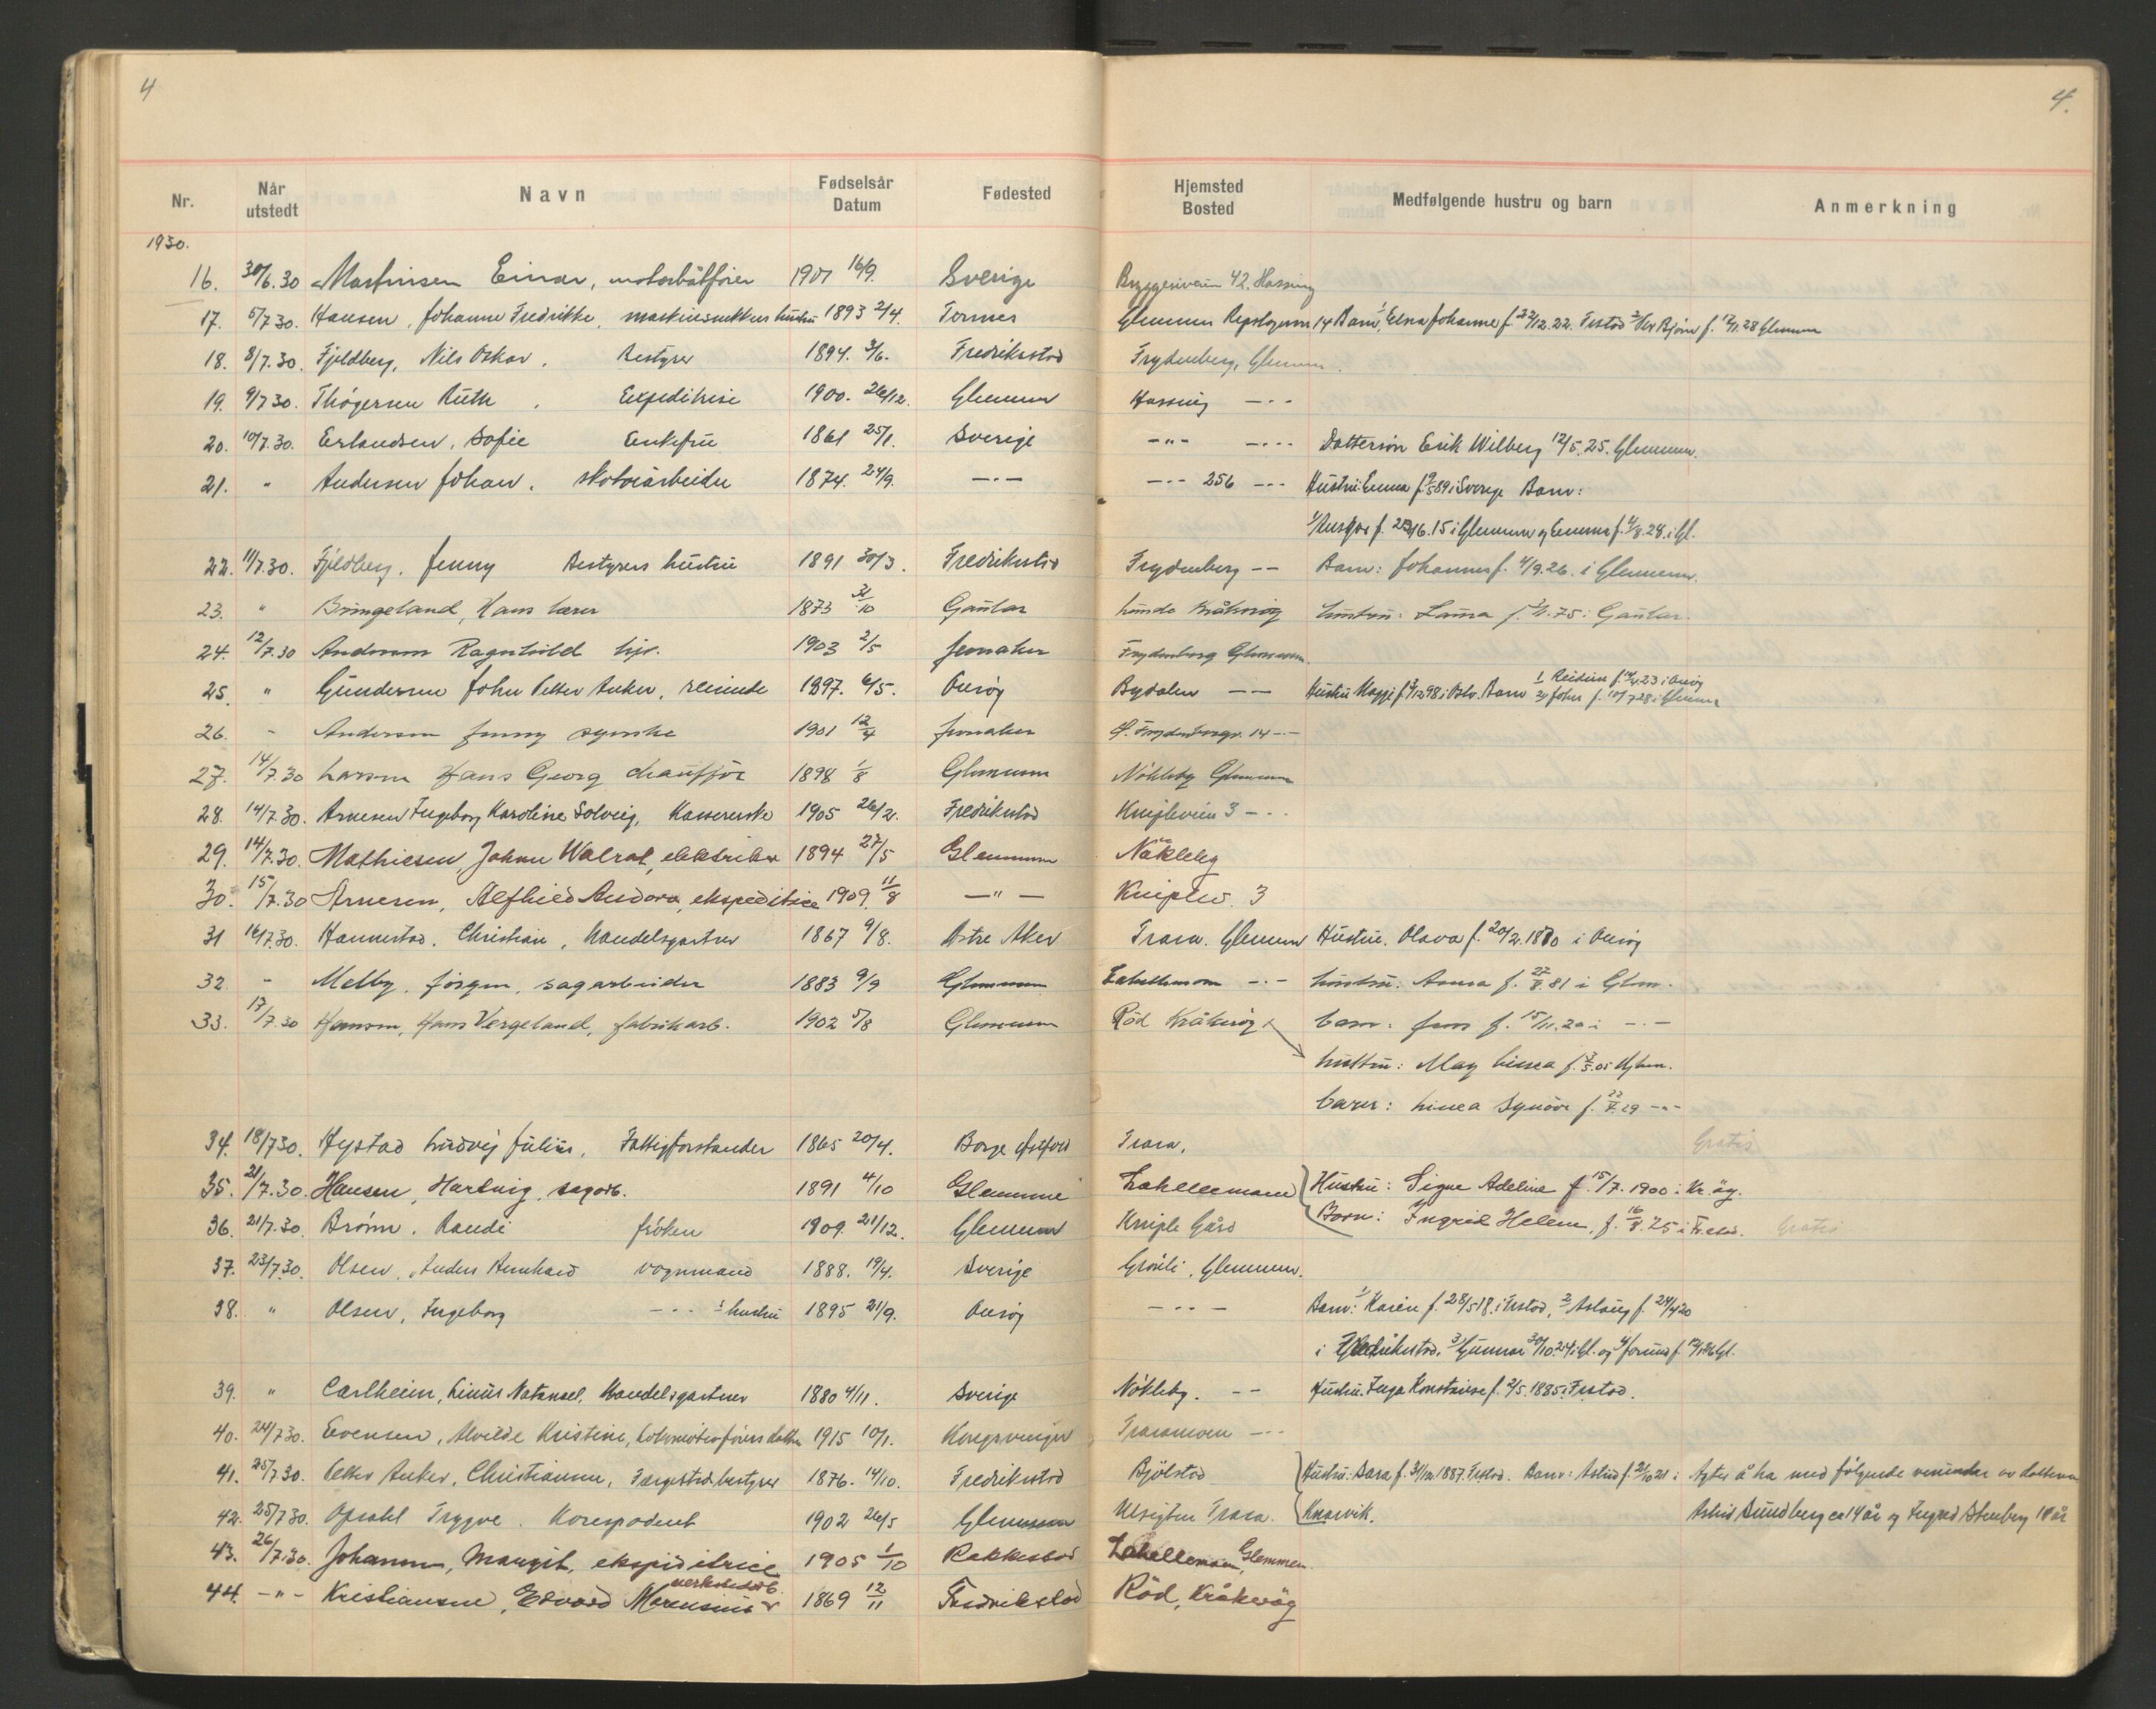 4
4.
Nr. Når utstedt Navn Fødselsår Datum Fødested Hjemsted Bosted Medfølgende hustru og barn Anmerkning
1930.
16. 30/6.30 Martinsen Einar, motorbåtfører 1901 16/9. Sverige Bryggeriveien 42. Hassing
17. 5/7 30. Hansen, Johanne Fredrikke, hustru 1893 2/4. Glemmen 14 Barn: 1/ Elna Johanne f. 22/12.22. Frstad 2/ Bjørn f. 28 Glemmen
18. 8/7.30. Fjeldberg, Nils Oskar. Bestyrer 1894. 3/6. Fredriksstad Frydenberg, Glemmen.
19. 9/7 30. Thøgersen Ruth. Expeditrise 1900. 26/12. Glemmen Hassing -"-
20. 10/7.30. Erlandsen, Sofie Enkefru 1861 25/1. Sverige -"- -"- Dattersøn Erik Wilberg 12/5.25. Glemmen.
21. " Andersen Johan. skotøiarbeider 1874. 24/9. -"- -"- 256 -"- Hustru: Emma f. 89 i Sverige Barn:
15 i Glemmen og f. 4/8.28. i Gl.
22. 11/7.30. Fjeldberg. Jenny Bestyrers hustru 1891 30/3. Fredrikstad Frydenberg -- Barn: Johannes f. 4/9.26. i Glemmen.
23. " Bringeland, Hans lærer 1873 31/10 Gaular Lunde Kråkerøy hustru: Laura f. 75 i Gaular.
24. 12/7.30 Andersen Ragnhild hjv. 1903 2/5 Jevnaker Frydenberg Glemmen.
25. " Gundersen John Petter Anker, reisende 1897. 6/5. Onsøy Bydalen -- Hustru f. 3/12 98 i Oslo. Barn 1/ Reidun f. 23 i Onsøy 2/ John f. 10/7 28 i Glemmen
26. - Andersen Jenny syerske 1901 12/4 Jevnaker 14 -"-
27. 14/7.30 Larsen Hans Georg chauffør 1898 1/8 Glemmen Nøkleby Glemmen
28. 14/7.30. Arnesen Ingeborg Karoline Solveig, Kassererske 1905 26/2. Fredrikstad Knipleveien 3 -"-
29. 14/7.30. Mathiesen, Johan Walrat, elektriker 1894 27/5 Glemmen Nøkleby
30. 15/7.30 Arnesen, Alfhild Andora, ekspeditrice 1909. 11/8 -"- Kniplev. 3
31 16/7.30. Hannestad. Christian, Handelsgartner 1867 9/8. Østre Aker Trara. Glemmen Hustru. Olava f. 20/2.1870 i Onsøy
32. - Melby, Jørgen, sagarbeider 1883 9/9 Glemmen Lahellemoen -"- hustru: Anna f. 27/8.81 i Glem.
33. 17/7.30 Hansen, Hans Vergeland, fabrikarb. 1902 5/8 Glemmen Rød Kråkerøy barn: Jens f. 15/11.20 i -"-
hustru: May Linea f. 3/5.05 Glem.
barn: Linea Synøve f. 29 -"-
34. 18/7 30. Hystad Ludvig Julius, Fattigforstander 1865 20/4. Borge Østfold Trara. Gratis
35. 21/7.30. Hansen, Hartvig, sagarb. 1891 4/10 Glemme Lahellemoen Hustru: Signe Adeline f. 15/7. 1900 i Kr.øy.
36. 21/7.30. Brønn. Randi frøken 1909. 21/12. Glemmen Kniple Gård Barn: Ingrid Helene, f. 16/8.25 i Fr.stad. Gratis
37. 23/7.30. Olsen, Anders Arnhard vognmand 1888. 19/4. Sverige Grønli, Glemmen.
38. " Olsen, Ingeborg -"- hustru 1895 21/9. Onsøy -"- Barn: 1/ Karin f. 28/5 18. i Frstad, 2/ Aslaug f. 24/4 20
i Fredrikstad. 3/ Gunnar 30/10 24 i Gl. og 4/ Jorunn f. 26 Gl.
39. " Carlheim, Linus Natanael, Handelsgartner 1880 4/11. Sverige Nøkleby. -- Hustru. Inga Konstanse f. 2/5.1885 i Frstad.
40. 24/7 30. Evensen, Alvilde Kristine, Lokomotivførers datter 1915 10/1. Kongsvinger Traramoen -"-
41. 25/7.30. Petter Anker, Christiansen, Færgestedbestyrer 1876. 14/10. Fredrikstad Bjølstad Hustru: Sara f. 31/12.1887. Frstad. Barn: Astrid f. 21/10 21 i Agter å ha med følgende veninder av datteren
42. 25/7 30. Opsahl Trygve. Korespodent 1902 26/5 Glemmen Utsigten Trara. Knarvik. Astrid Sundberg ca 14 år og Ingrid Stenberg 10 år
43. 26/7.30. Johansen, Margit, ekspeditrice 1905 1/10 Rakkestad Lahellemoen, Glemmen.
44. -"- Kristiansen, Edvard Marensius verkstedarb. 1869 12/11 Fredrikstad Rød, Kråkerøy